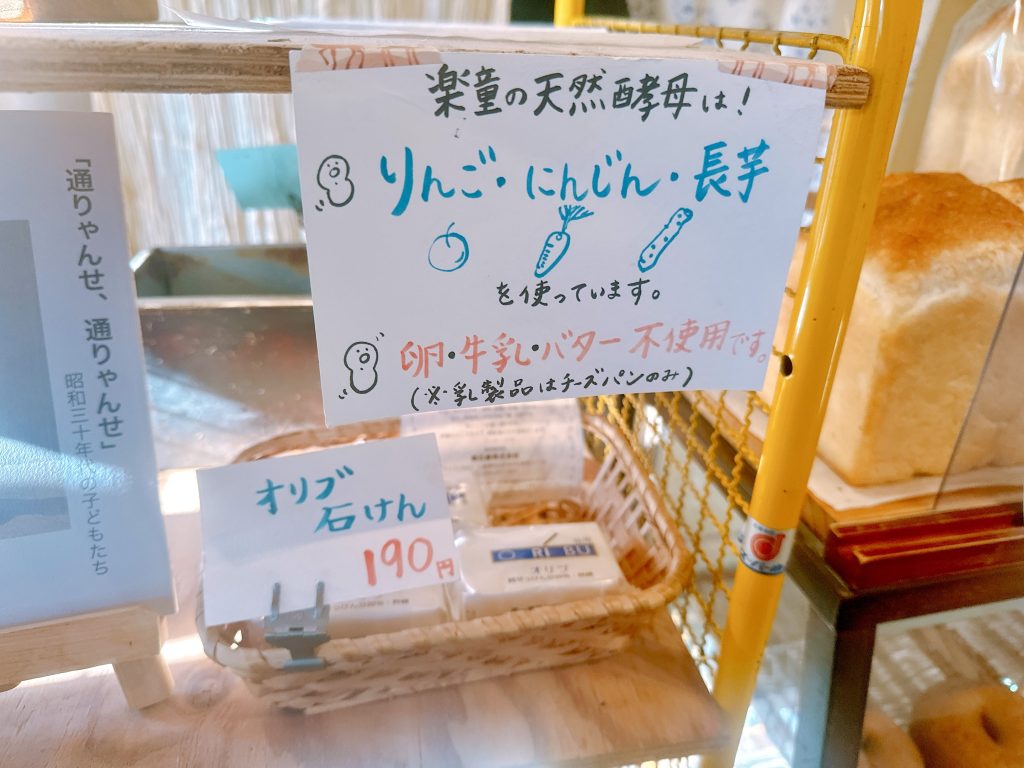 楽童の天然酵母は!
りんご・にんじん・長芋
を使っています。
卵・牛乳・バター不使用です。
(※乳製品はチーズパンのみ)
「通りゃんせ、通りゃんせ」
昭和三十年代の子どもたち
オリブ
石けん
190円
O RI BU
オリブ